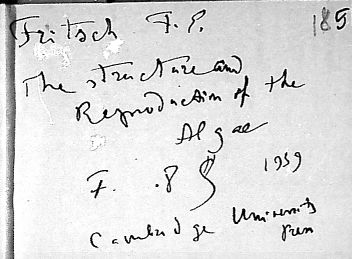 Fritsch F. E. 185
The structure and
Reproduction of the
Algae
F. 1959
Cambridge University
Press